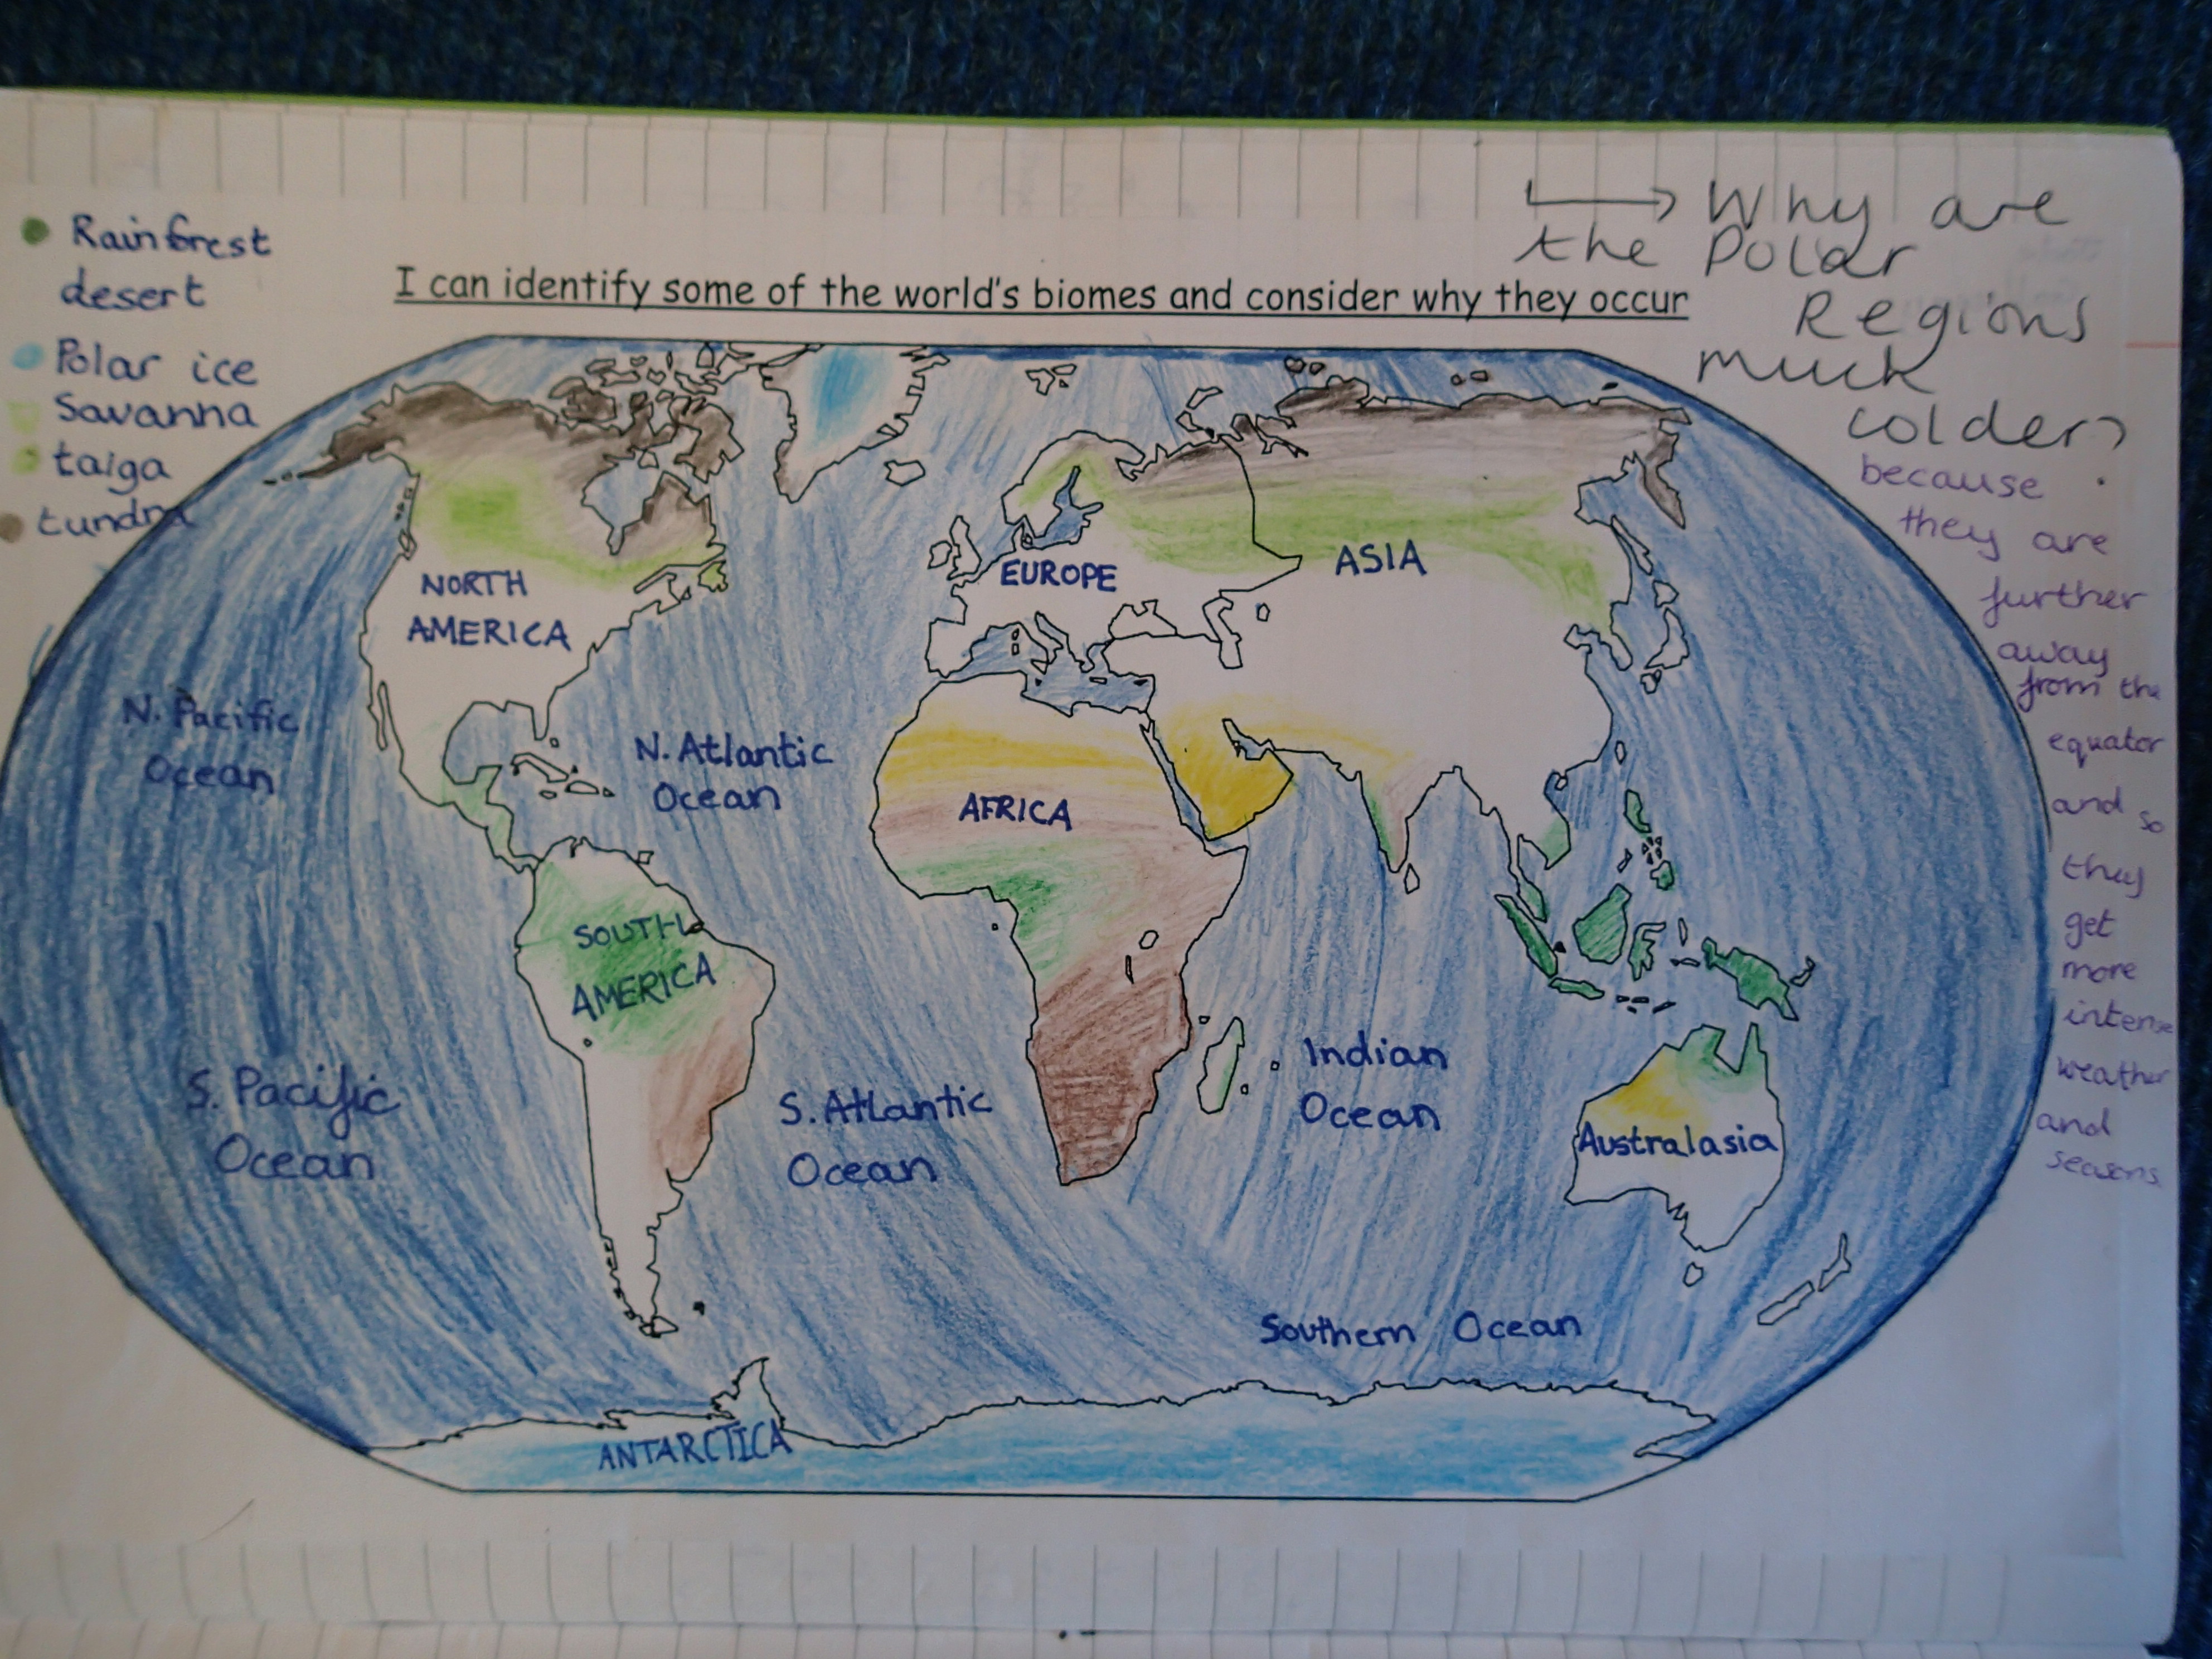 Rainforest
desert
Polar ice
Savanna
taiga
tundra
I can identify some of the world's biomes and consider why they occur
Why are
the Polar
Regions
much
colder?
because
they are
further
away
from the
equator
and so
they
get
more
intense
weather
and
seasons.
NORTH
AMERICA
EUROPE
ASIA
N. Pacific
Ocean
N. Atlantic
Ocean
AFRICA
SOUTH
AMERICA
S. Pacific
Ocean
S. Atlantic
Ocean
Indian
Ocean
Australasia
Southern Ocean
ANTARCTICA